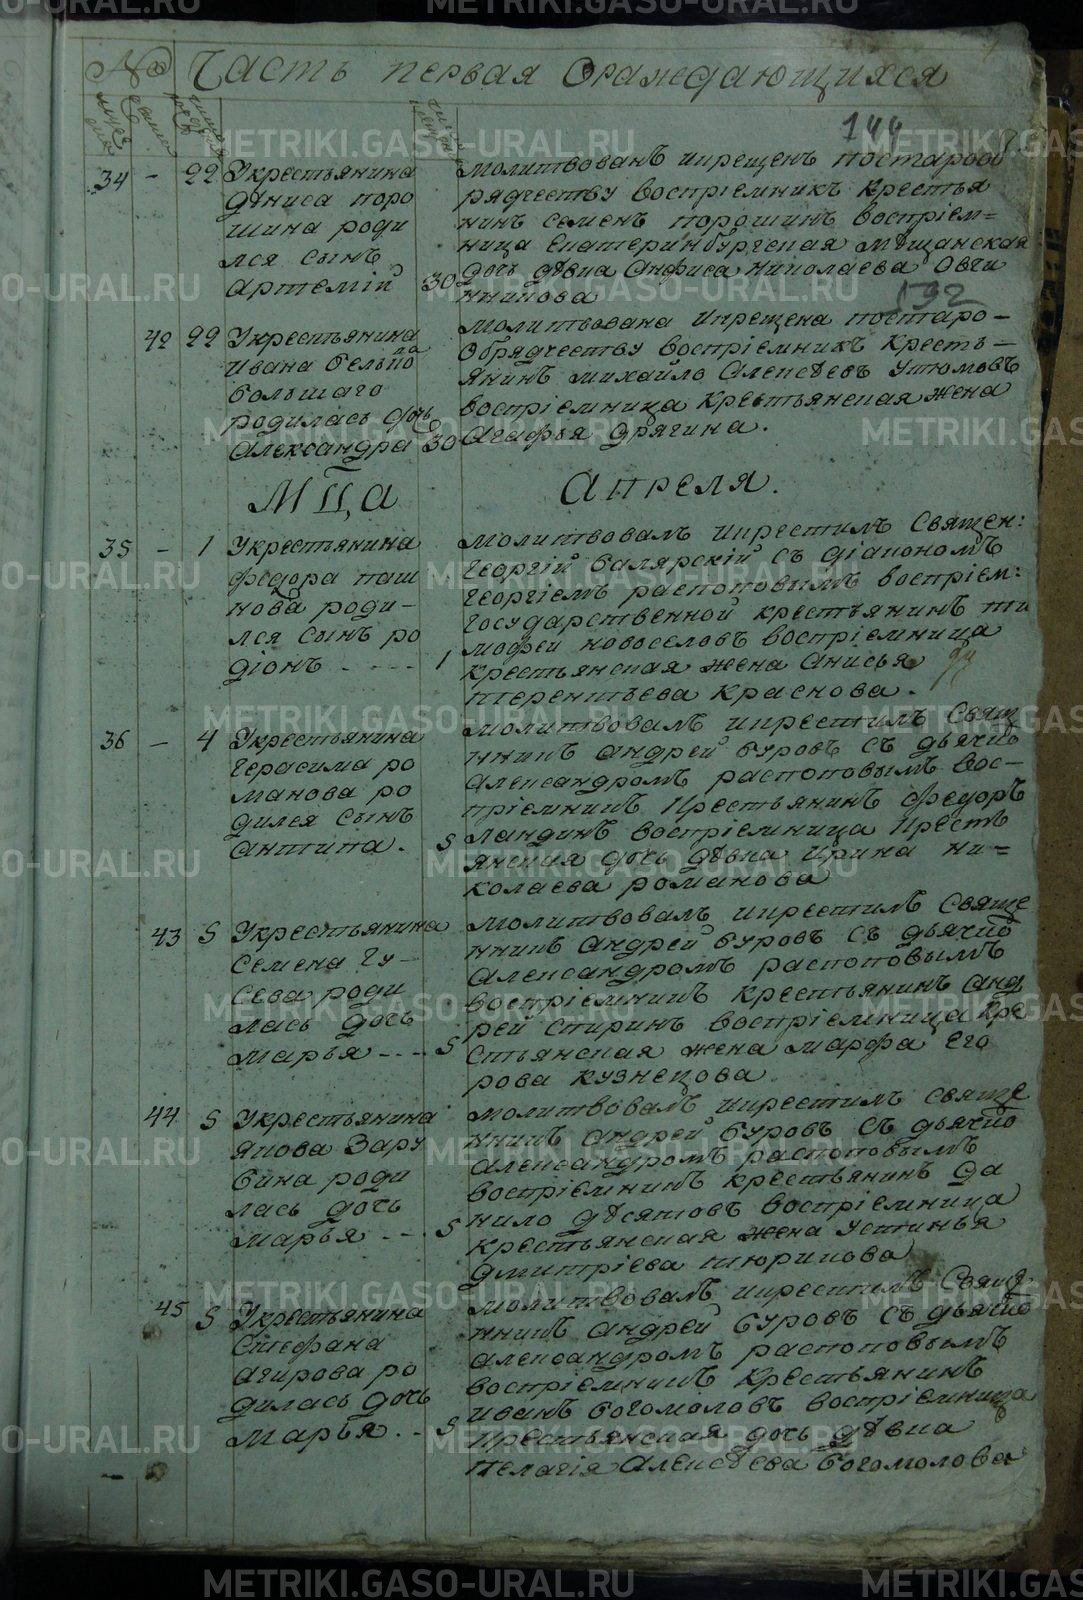 № Часть первая Ораждающихся
144
192
34 - 22 Укрестьянина
Дениса поро
шина роди
лся сынъ
Артемій 30
молитвованъ икрещенъ постарооб
рядчеству воспріемникъ крестья
нинъ семенъ порошинъ воспріем=
ница Екатеринбургская мещанская
дочь девка Анфиса николаева Овчи
нникова
42 22 Укрестьянина
ивана
большаго
родилась дочь
Александра 30
молитвована икрещена постаро-
обрядчеству воспріемникъ кресть-
янинъ михайло Алексеевъ Утюмовъ
воспріемница крестьянская жена
Агафья Дрягина.
Мца Апреля.
35 - 1 Укрестьянина
федора паш
нова роди-
лся сынъ ро
діонъ - - - - 1
молитвовалъ икрестилъ Священ:
георгій Валярскій съ діакономъ
георгіемъ распоповымъ воспріем:
государственной крестьянинъ ти
мофей новоселовъ воспріемница
крестьянская жена Анисья
терентьева краснова.
36 - 4 Укрестьянина
герасима ро
манова ро
дился сынъ
Антипа. 5
молитвовалъ икрестилъ Свящ
нникъ андрей буровъ съ дьячко
Александромъ распоповымъ вос-
пріемникъ крестьянинъ федоръ
ландинъ воспріемница крест
янская дочь девка Ирина ни=
колаева романова
43 5 Укрестьянина
Семена Гу-
сева роди
лась дочь
марья - - - - 5
молитвовалъ икрестилъ Свяще
нникъ андрей буровъ съ дьячко
Александромъ распоповымъ
воспріемникъ крестьянинъ анд
рей спиринъ воспріемница кре
стьянская жена марфа его
рова кузнецова
44 5 Укрестьянина
якова Зару
бина роди
лась дочь
марья - - - 5
молитвовалъ икрестилъ свяще
нникъ андрей буровъ съ дьячко
Александромъ распоповымъ
воспріемникъ крестьянинъ да
нило десятовъ воспріемница
крестьянская жена устинья
дмитріева тюрикова
45 5 Укрестьянина
Стефана
Агирова ро
дилась дочь
марья - - 5
молитвовалъ икрестилъ Свяще
нникъ андрей буровъ съ дьячко
Александромъ распоповымъ
воспріемникъ крестьянинъ
иванъ богомоловъ воспріемница
крестьянская дочь девка
пелагія Алексеева богомолова
METRIKI.GASO-URAL.RU